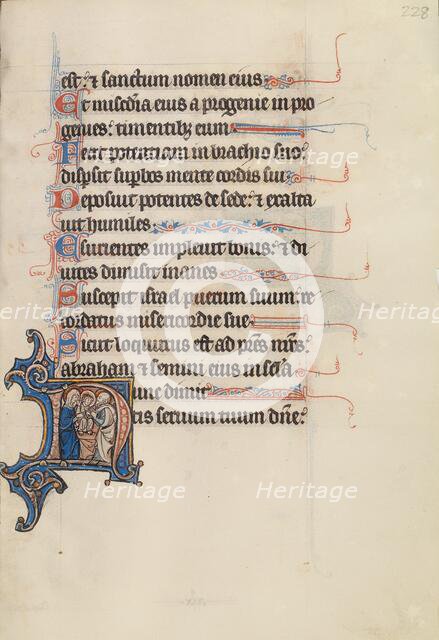 228
est: & sanctum nomen eius
Et misc̄dia eius a progenie in pro
genies: timentibꝫ eum
Fecit potentiam in brachio suo:
dispsit supbos mente cordis sui
Deposuit potentes de sede: & exalta
uit humiles
Esurientes impleuit bonis: & di
uites dimisit inanes
Suscepit isrl̄ puerum suum: re
cordatus misericordie sue
Sicut locutus est ad pr̄es nr̄os:
abraham & semini eius in sc̄la
Nunc dimit
tis seruum tuum dn̄e:
Heritage Heritage Heritage
Heritage Heritage